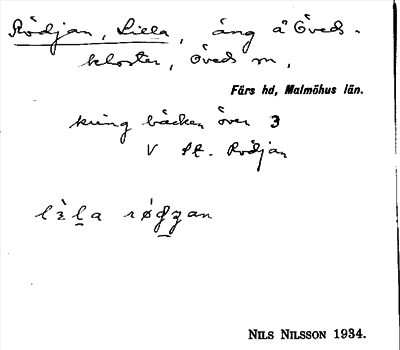 Rödjan, Lilla, äng å Öveds-
kloster, Öveds sn,
Färs hd, Malmöhus län.
kring bäcken över 3
V St. Rödjan
Nils Nilsson 1934.